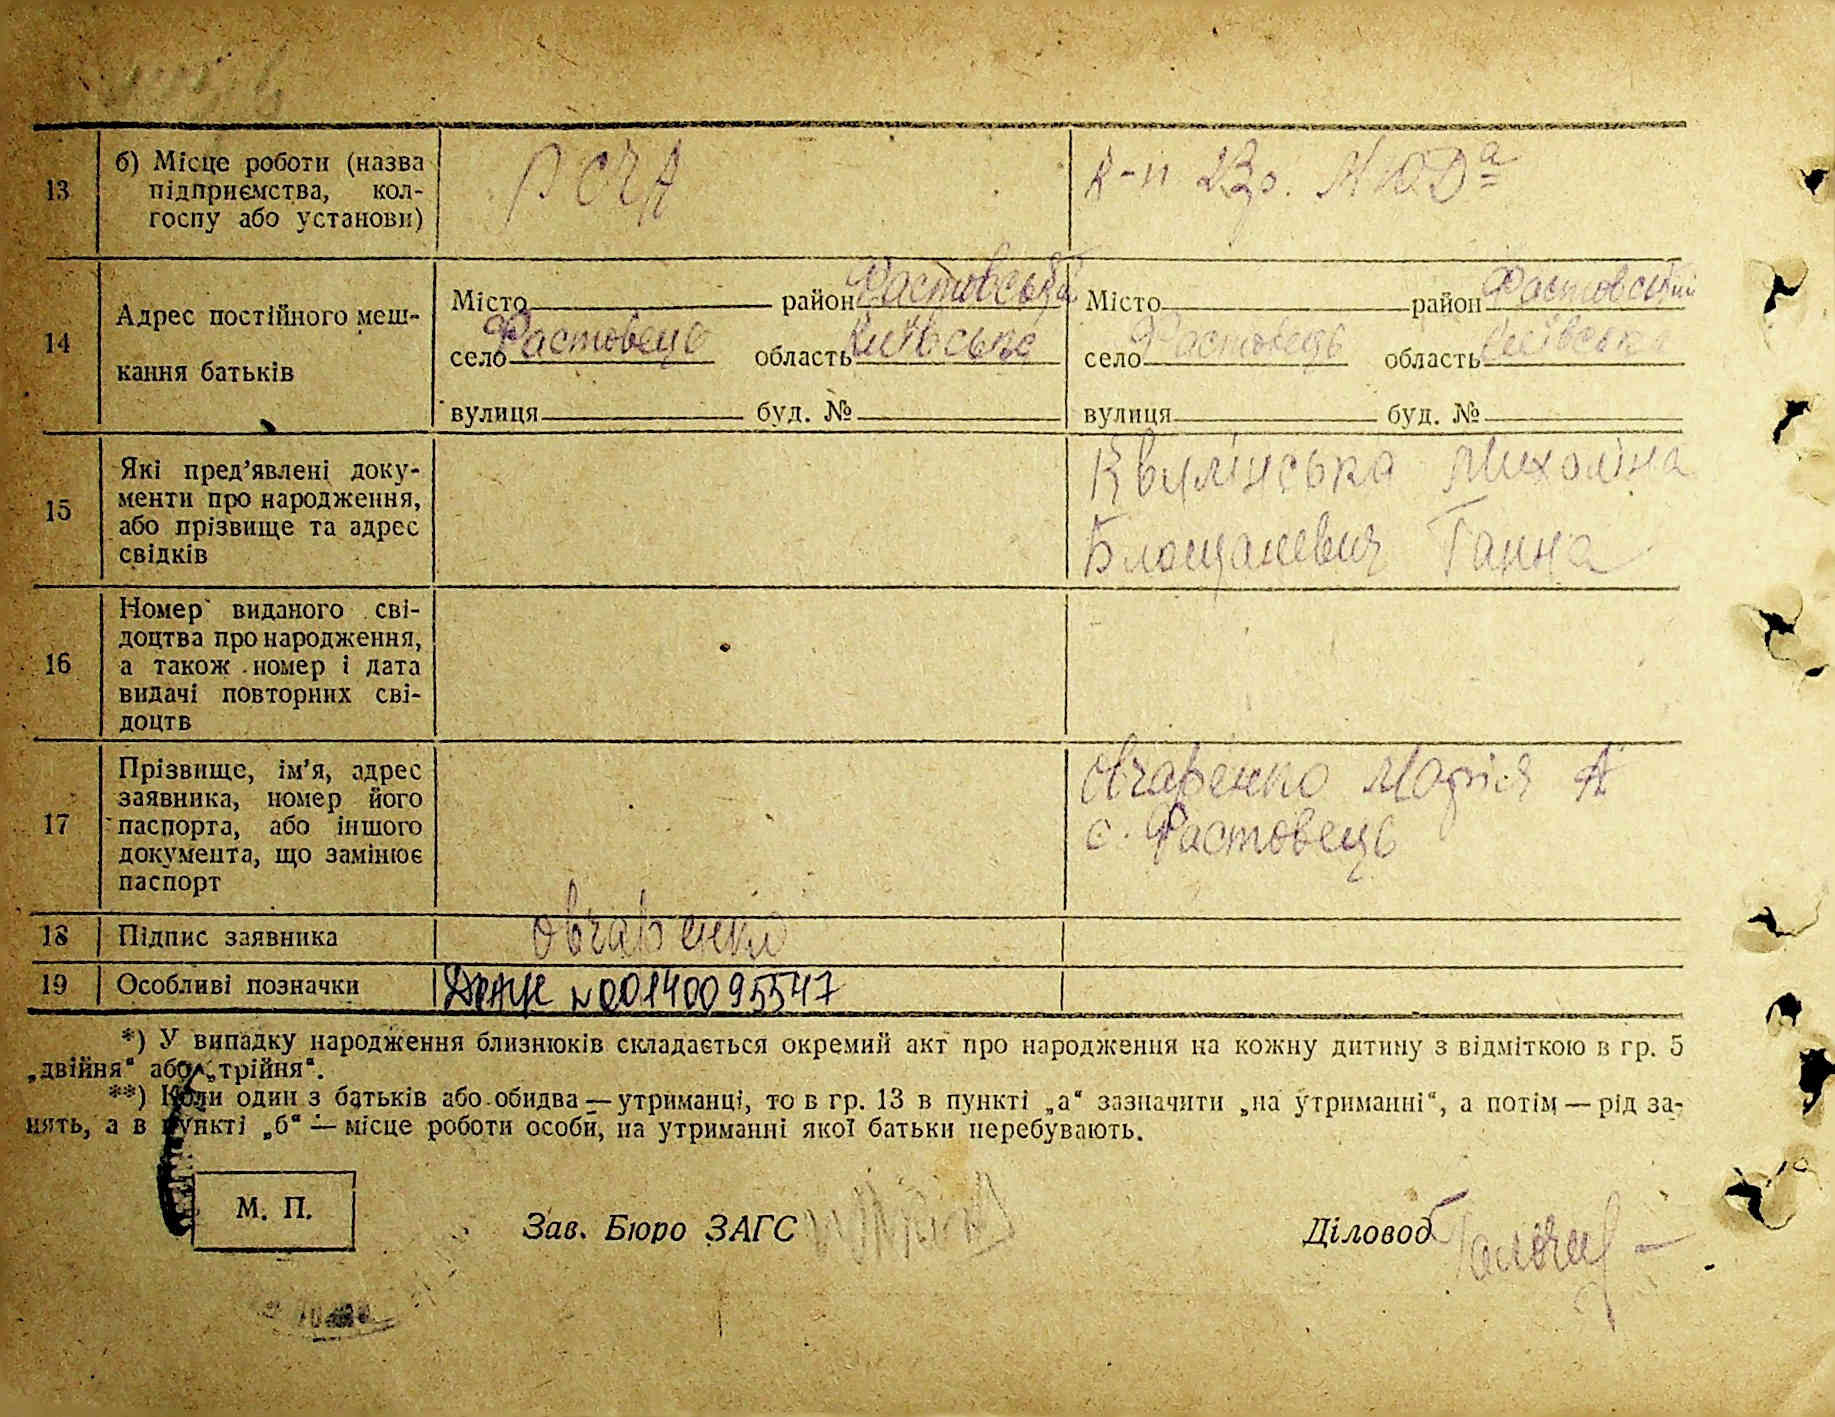 13 б) Місце роботи (назва
підприємства, кол-
госпу або установи)
РСЧА
к-п
14 Адрес постійного меш-
кання батьків
Місто район Фастовський
село Фастовець область Київська
вулиця буд. №
Місто район Фастовський
село Фастовець область Київська
вулиця буд. №
15 Які пред’явлені доку-
менти про народження,
або прізвище та адрес
свідків
Квилінська Михаліна
Ганна
16 Номер виданого сві-
доцтва про народження,
а також номер і дата
видачі повторних сві-
доцтв
17 Прізвище, ім’я, адрес
заявника, номер його
паспорта, або іншого
документа, що замінює
паспорт
Овчаренко Марія А
с. Фастовець
18 Підпис заявника Овчаренко
19 Особливі позначки N00140095547
*) У випадку народження близнюків складається окремий акт про народження на кожну дитину з відміткою в гр. 5
„двійня“ або „трійня“.
**) Коли один з батьків або обидва — утриманці, то в гр. 13 в пункті „а“ зазначити „на утриманні“, а потім — рід за-
нять, а в пункті „б“ — місце роботи особи, на утриманні якої батьки перебувають.
М. П.
Зав. Бюро ЗАГС
Діловод